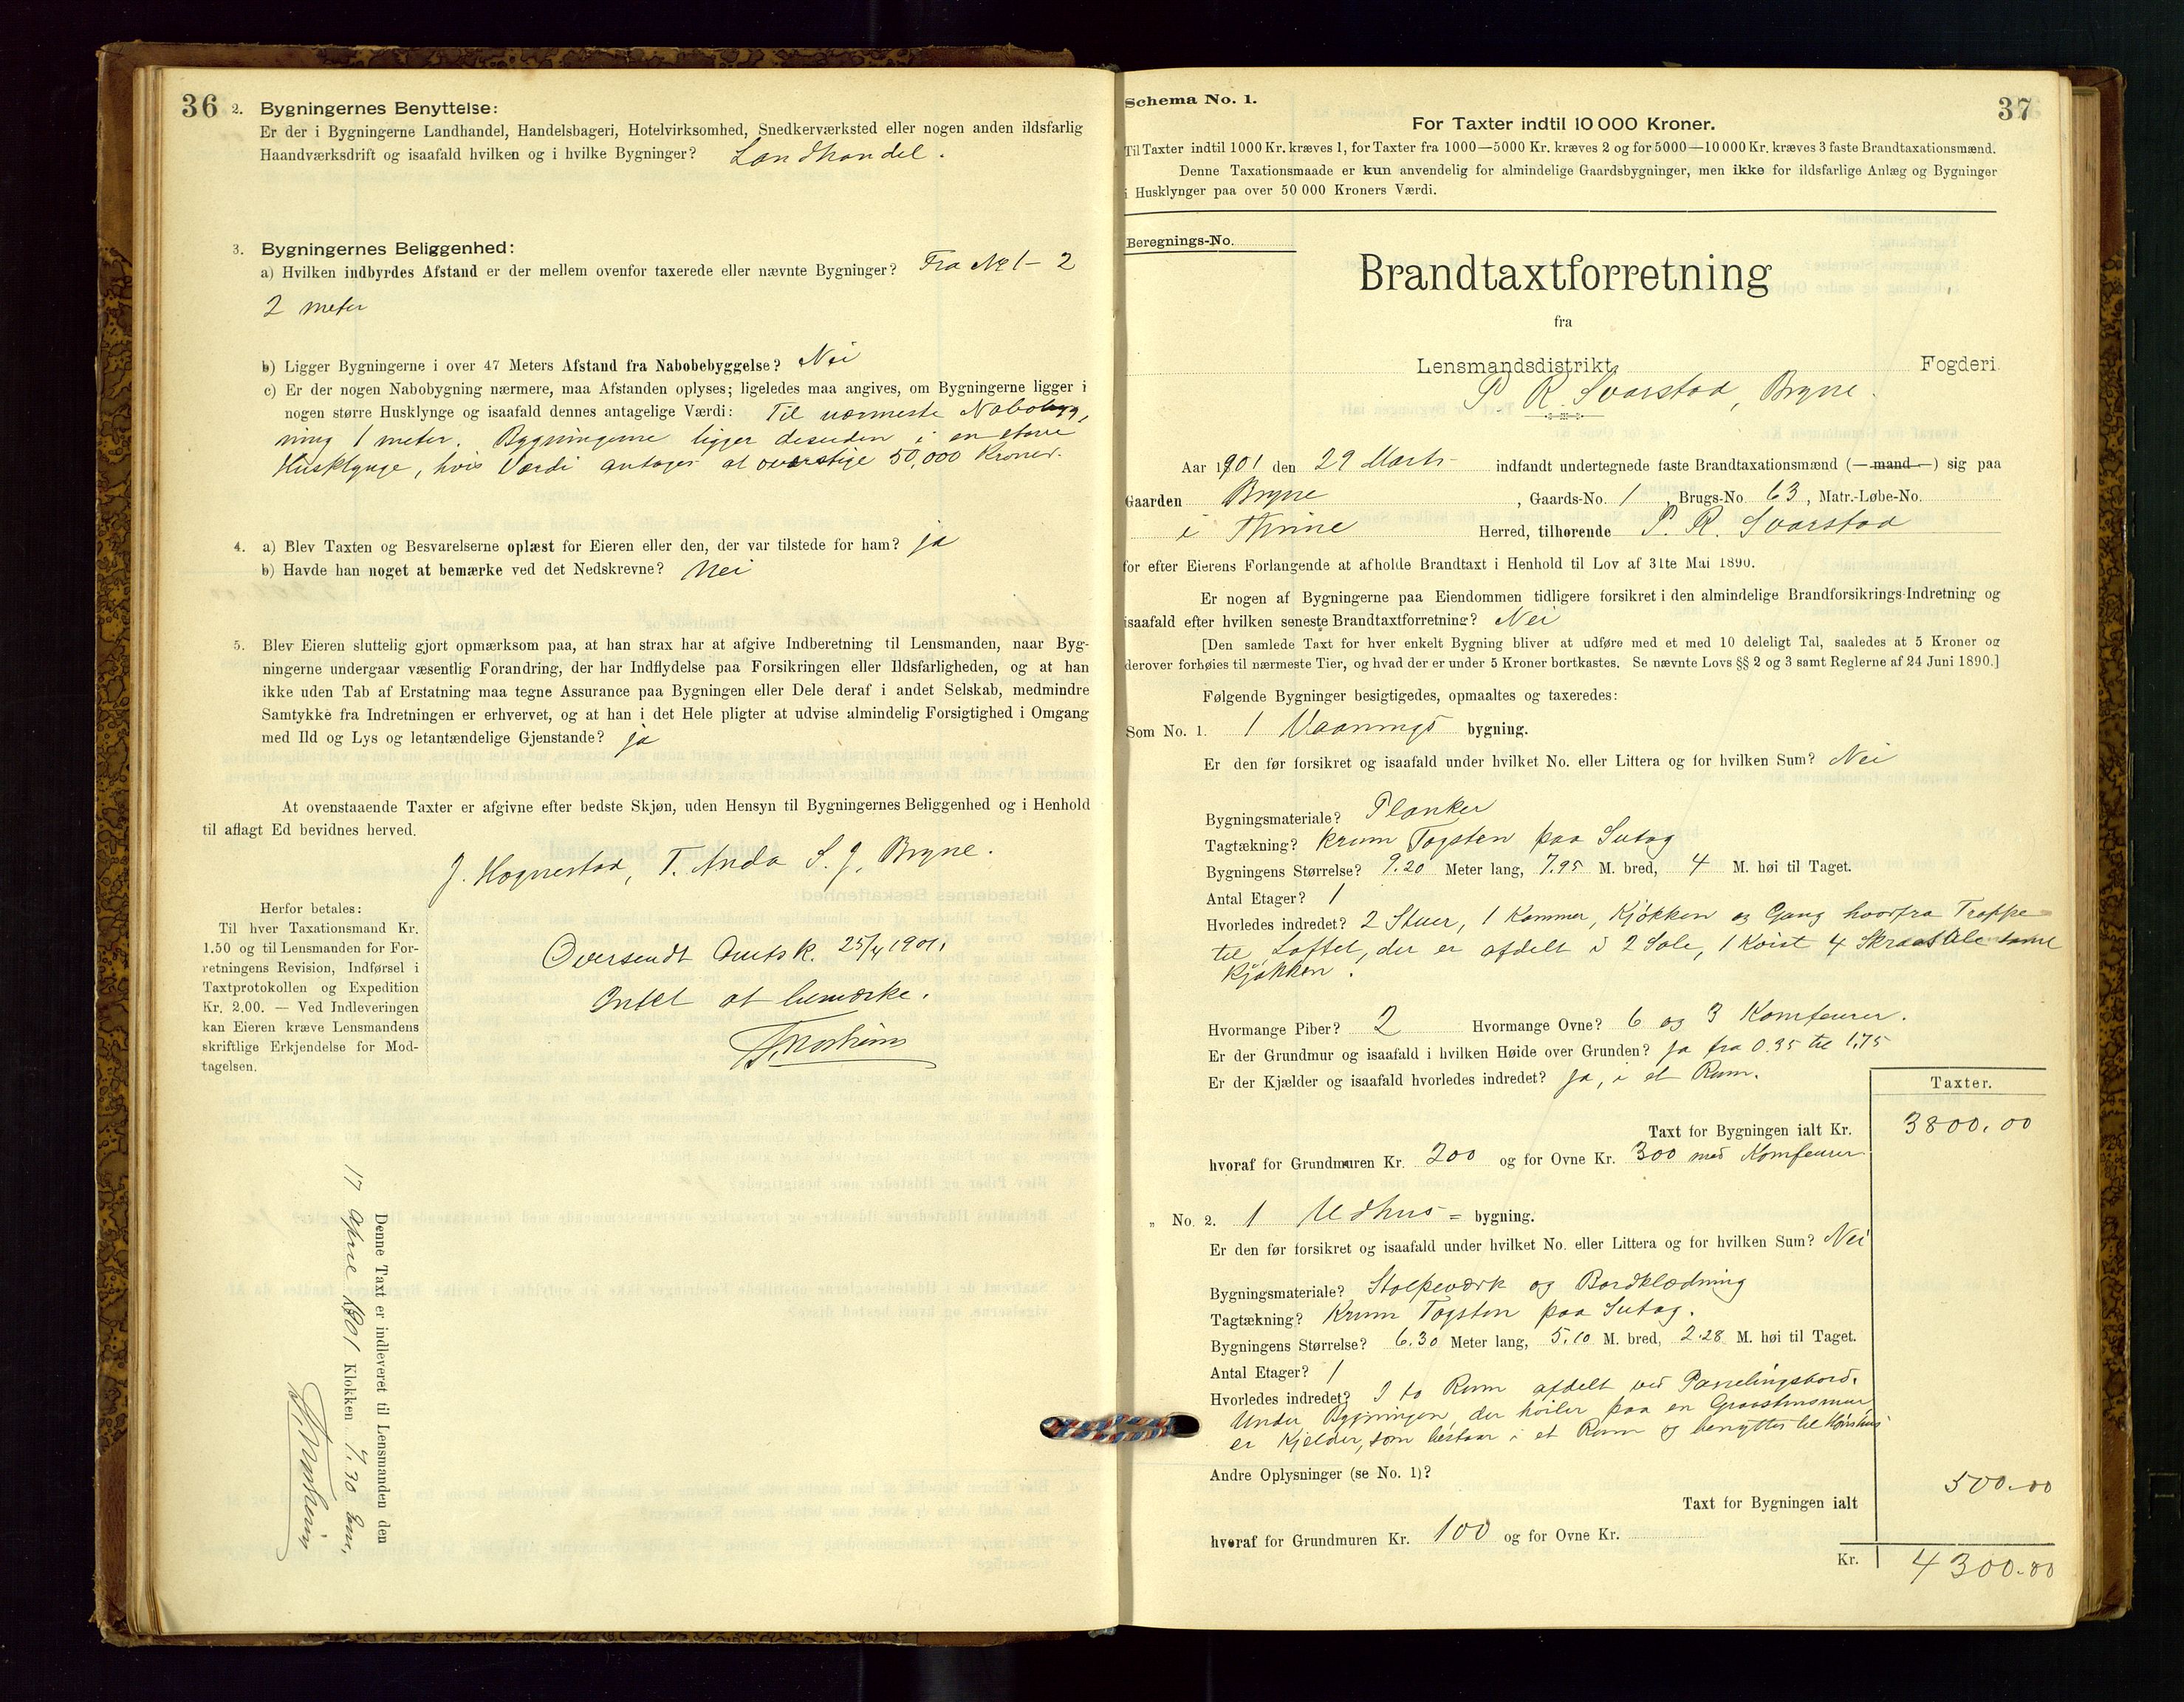 36
2. Bygningernes Benyttelse:
Er der i Bygningerne Landhandel, Handelsbageri, Hotelvirksomhed, Snedkerværksted eller nogen anden ildsfarlig
Haandværksdrift og isaafald hvilken og i hvilke Bygninger? Landhandel.
3. Bygningernes Beliggenhed:
a) Hvilken indbyrdes Afstand er der mellem ovenfor taxerede eller nævnte Bygninger? Fra No 1 - 2
2 meter
b) Ligger Bygningerne i over 47 Meters Afstand fra Nabobebyggelse? Nei
c) Er der nogen Nabobygning nærmere, maa Afstanden oplyses; ligeledes maa angives, om Bygningerne ligger i
nogen større Husklynge og isaafald dennes antagelige Værdi: Til nærmeste Nabobyg,
ning 1 meter. Bygningerne ligger desuden i en større
Husklynge, hvis Værdi antages at overstige 50,000 Kroner.
4. a) Blev Taxten og Besvarelserne oplæst for Eieren eller den, der var tilstede for ham? ja
b) Havde han noget at bemærke ved det Nedskrevne? Nei
5. Blev Eieren sluttelig gjort opmærksom paa, at han strax har at afgive Indberetning til Lensmanden, naar Byg-
ningerne undergaar væsentlig Forandring, der har Indflydelse paa Forsikringen eller Ildsfarligheden, og at han
ikke uden Tab af Erstatning maa tegne Assurance paa Bygningen eller Dele deraf i andet Selskab, medmindre
Samtykke fra Indretningen er erhvervet, og at han i det Hele pligter at udvise almindelig Forsigtighed i Omgang
med Ild og Lys og letantændelige Gjenstande? ja
At ovenstaaende Taxter er afgivne efter bedste Skjøn, uden Hensyn til Bygningernes Beliggenhed og i Henhold
til aflagt Ed bevidnes herved.
J. Hognestad, T. Anda S. J. Bryne.
Herfor betales:
Til hver Taxationsmand Kr.
1.50 og til Lensmanden for For-
retningens Revision, Indførsel i
Taxtprotokollen og Expedition
Kr. 2.00. — Ved Indleveringen
kan Eieren kræve Lensmandens
skriftlige Erkjendelse for Mod-
tagelsen.
Oversendt Amtsk. 25/4 1901.
Intet at bemærke.
Denne Taxt er indleveret til Lensmanden den
17 April 1901 Klokken 7,30 Em.
Schema No. 1.
37
For Taxter indtil 10 000 Kroner.
Til Taxter indtil 1000 Kr. kræves 1, for Taxter fra 1000—5000 Kr. kræves 2 og for 5000—10 000 Kr. kræves 3 faste Brandtaxationsmænd.
Denne Taxationsmaade er kun anvendelig for almindelige Gaardsbygninger, men ikke for ildsfarlige Anlæg og Bygninger
i Husklynger paa over 50 000 Kroners Værdi.
Beregnings-No.
Brandtaxtforretning
fra
Lensmandsdistrikt Fogderi.
P. R. Svarstad, Bryne.
Aar 1901 den 29 Marts indfandt undertegnede faste Brandtaxationsmænd (—mand—) sig paa
Gaarden Bryne, Gaards-No. 1, Brugs-No. 63, Matr.-Løbe-No.
i Thime Herred, tilhørende P. R. Svarstad
for efter Eierens Forlangende at afholde Brandtaxt i Henhold til Lov af 31te Mai 1890.
Er nogen af Bygningerne paa Eiendommen tidligere forsikret i den almindelige Brandforsikrings-Indretning og
isaafald efter hvilken seneste Brandtaxtforretning? Nei
[Den samlede Taxt for hver enkelt Bygning bliver at udføre med et med 10 deleligt Tal, saaledes at 5 Kroner og
derover forhøies til nærmeste Tier, og hvad der er under 5 Kroner bortkastes. Se nævnte Lovs §§ 2 og 3 samt Reglerne af 24 Juni 1890.]
Følgende Bygninger besigtigedes, opmaaltes og taxeredes:
Som No. 1. 1 Vaanings bygning.
Er den før forsikret og isaafald under hvilket No. eller Littera og for hvilken Sum? Nei
Bygningsmateriale? Planker
Tagtækning? Krum Tagsten paa Sutag
Bygningens Størrelse? 9.20 Meter lang, 7.95 M. bred, 4 M. høi til Taget.
Antal Etager? 1
Hvorledes indredet? 2 Stuer, 1 Kammer, Kjøkken og Gang hvorfra Trappe
til Loftet, der er afdelt i 2 Sale, 1 Kvist 4 Skraasale samt
Kjøkken.
Hvormange Piber? 2 Hvormange Ovne? 6 og 3 Komfeurer.
Er der Grundmur og isaafald i hvilken Høide over Grunden? Ja fra 0.35 til 1.75
Er der Kjælder og isaafald hvorledes indredet? Ja, i et Rum.
Taxter.
Taxt for Bygningen ialt Kr. 3800.00
hvoraf for Grundmuren Kr. 200 og for Ovne Kr. 300 med Komfeurer
„ No. 2. 1 Udhus = bygning.
Er den før forsikret og isaafald under hvilket No. eller Littera og for hvilken Sum? Nei
Bygningsmateriale? Stolpeværk og Bordklædning
Tagtækning? Krum Tagsten paa Sutag.
Bygningens Størrelse? 6.30 Meter lang, 5.10 M. bred, 2.28 M. høi til Taget.
Antal Etager? 1
Hvorledes indredet? I to Rum afdelt ved Panelingsbord.
Under Bygningen, der hviler paa en Graastensmur
er Kjelder, som bestaar i et Rum og benyttes til Hønsehus
Andre Oplysninger (se No. 1)?
Taxt for Bygningen ialt 500.00
hvoraf for Grundmuren Kr. 100 og for Ovne Kr.
Kr. 4300.00